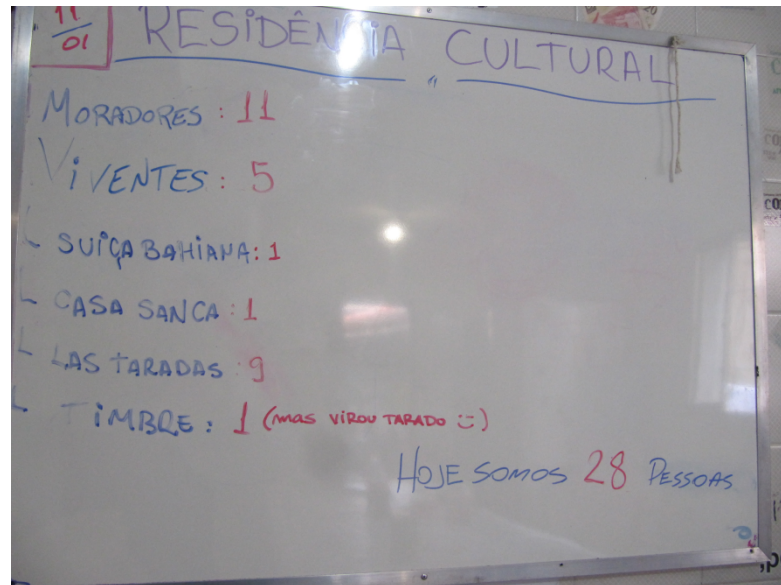 11/01 RESIDÊNCIA CULTURAL
MORADORES: 11
ViVENTES: 5
SUiÇA BAHiANA: 1
CASA SANCA: 1
LAS TARADAS: 9
TiMBRE: 1 (mas VIROU TARADO :))
HOJE SOMOS 28 PESSOAS